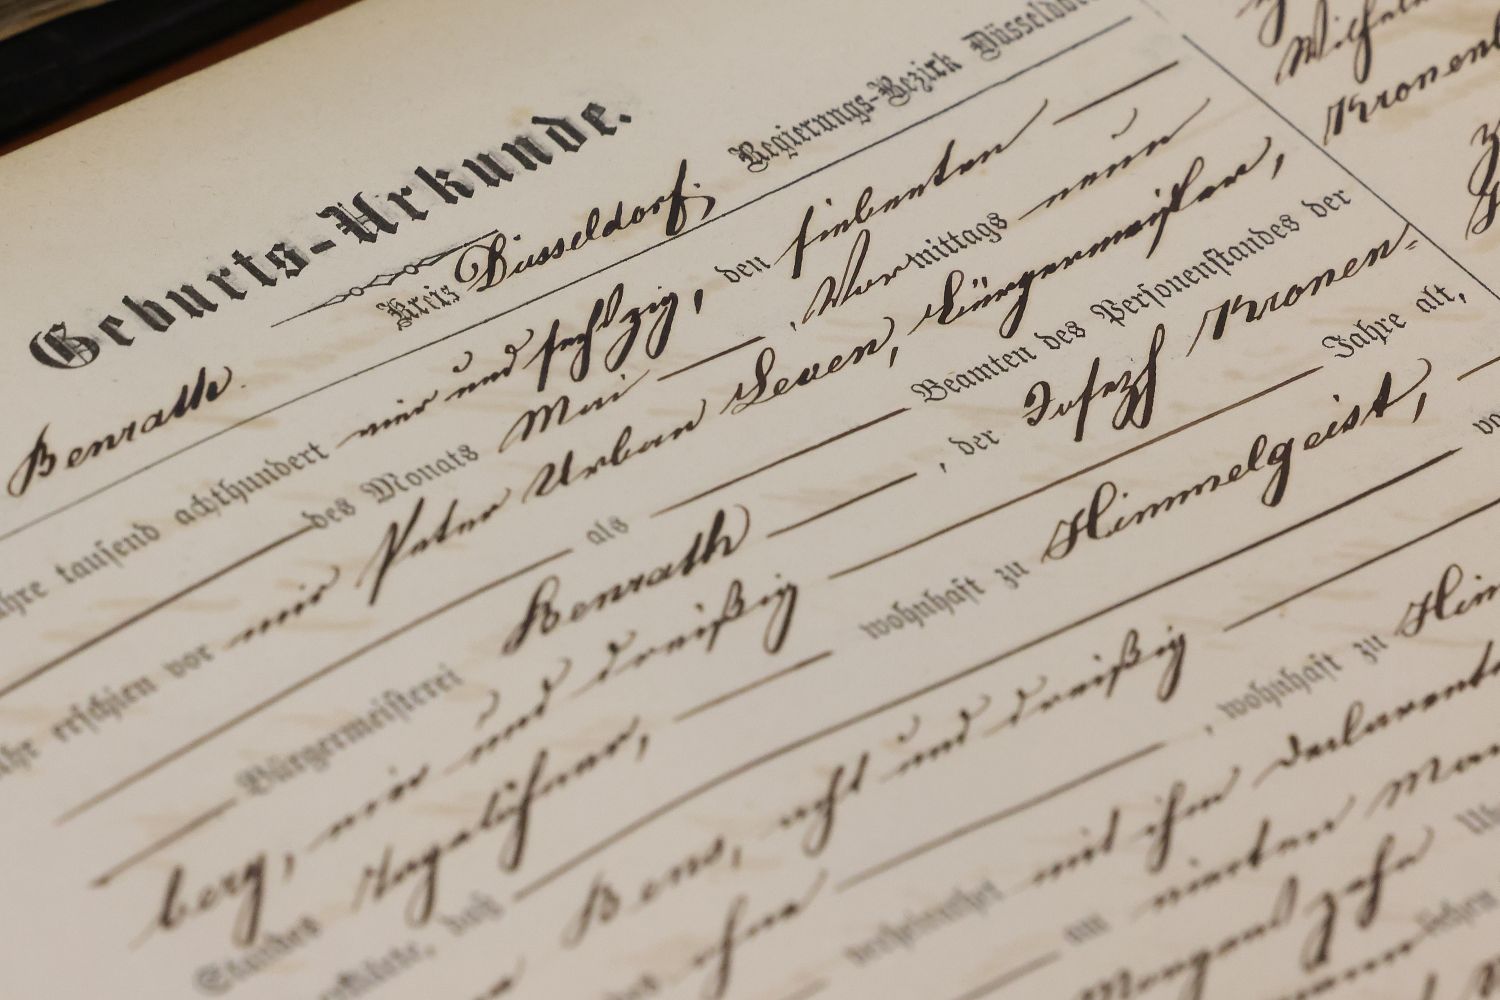 Geburts-Urkunde.
Benrath Kreis Düsseldorf, Regierungs-Bezirk Düsseldorf
tausend achthundert vier und sechszig, den siebenten
des Monats Mai , Vormittags neun
erschien vor mir Peter Urban Leven, Bürgermeister,
als Beamten des Personenstandes der
Bürgermeisterei Benrath , der Joseph Kronen-
berg, vier und dreißig Jahre alt,
Standes Tagelöhner, wohnhaft zu Himmelgeist,
daß
Bens, acht und dreißig
ohne , wohnhaft zu Him
verheirathet mit ihm Declarenten
am vierten
Morgens zehn
Wilhelm
Kronenb